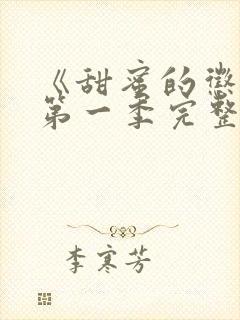 《甜蜜的徽
第一季完整
李寒芳